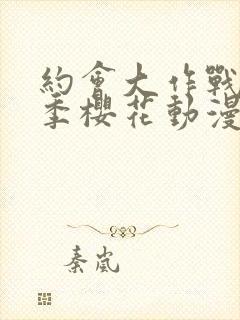 約會大作戰
季櫻花動漫
秦嵐